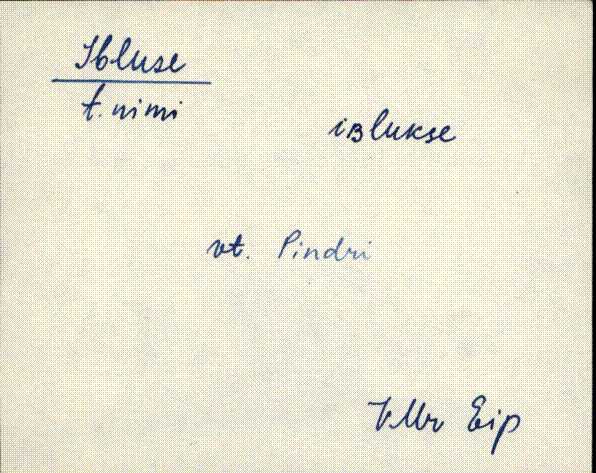 Ibluse
t. nimi
iʙlukse
vt. Pindri
VMr Eip